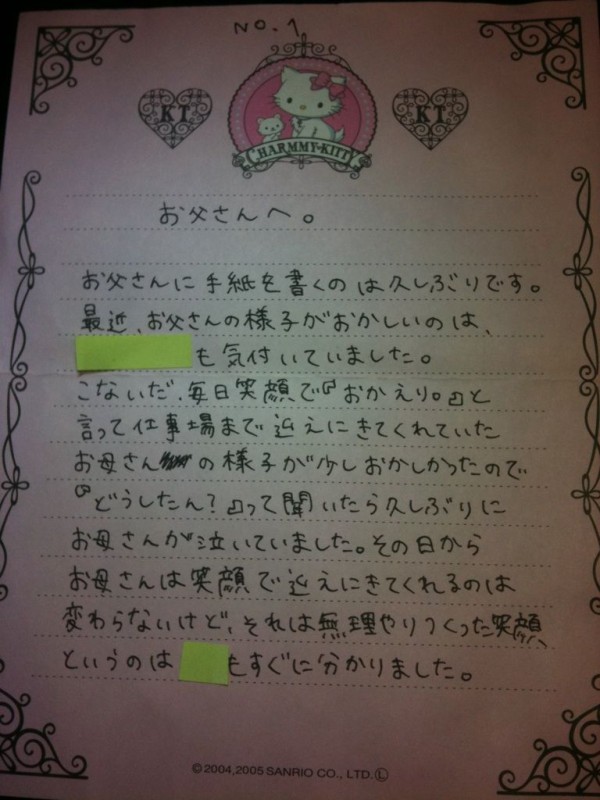 NO.1
KT
KT
CHARMMY★KITTY
お父さんへ。
お父さんに手紙を書くのは久しぶりです。
最近、お父さんの様子がおかしいのは、
も気付いていました。
こないだ、毎日笑顔で『おかえり。』と
言って仕事場まで迎えにきてくれていた
お母さん の様子が少しおかしかったので
『どうしたん?』って聞いたら久しぶりに
お母さんが泣いていました。その日から
お母さんは笑顔で迎えにきてくれるのは
変わらないけど、それは無理やりつくった笑顔
というのは もすぐに分かりました。
©2004,2005 SANRIO CO., LTD. Ⓛ